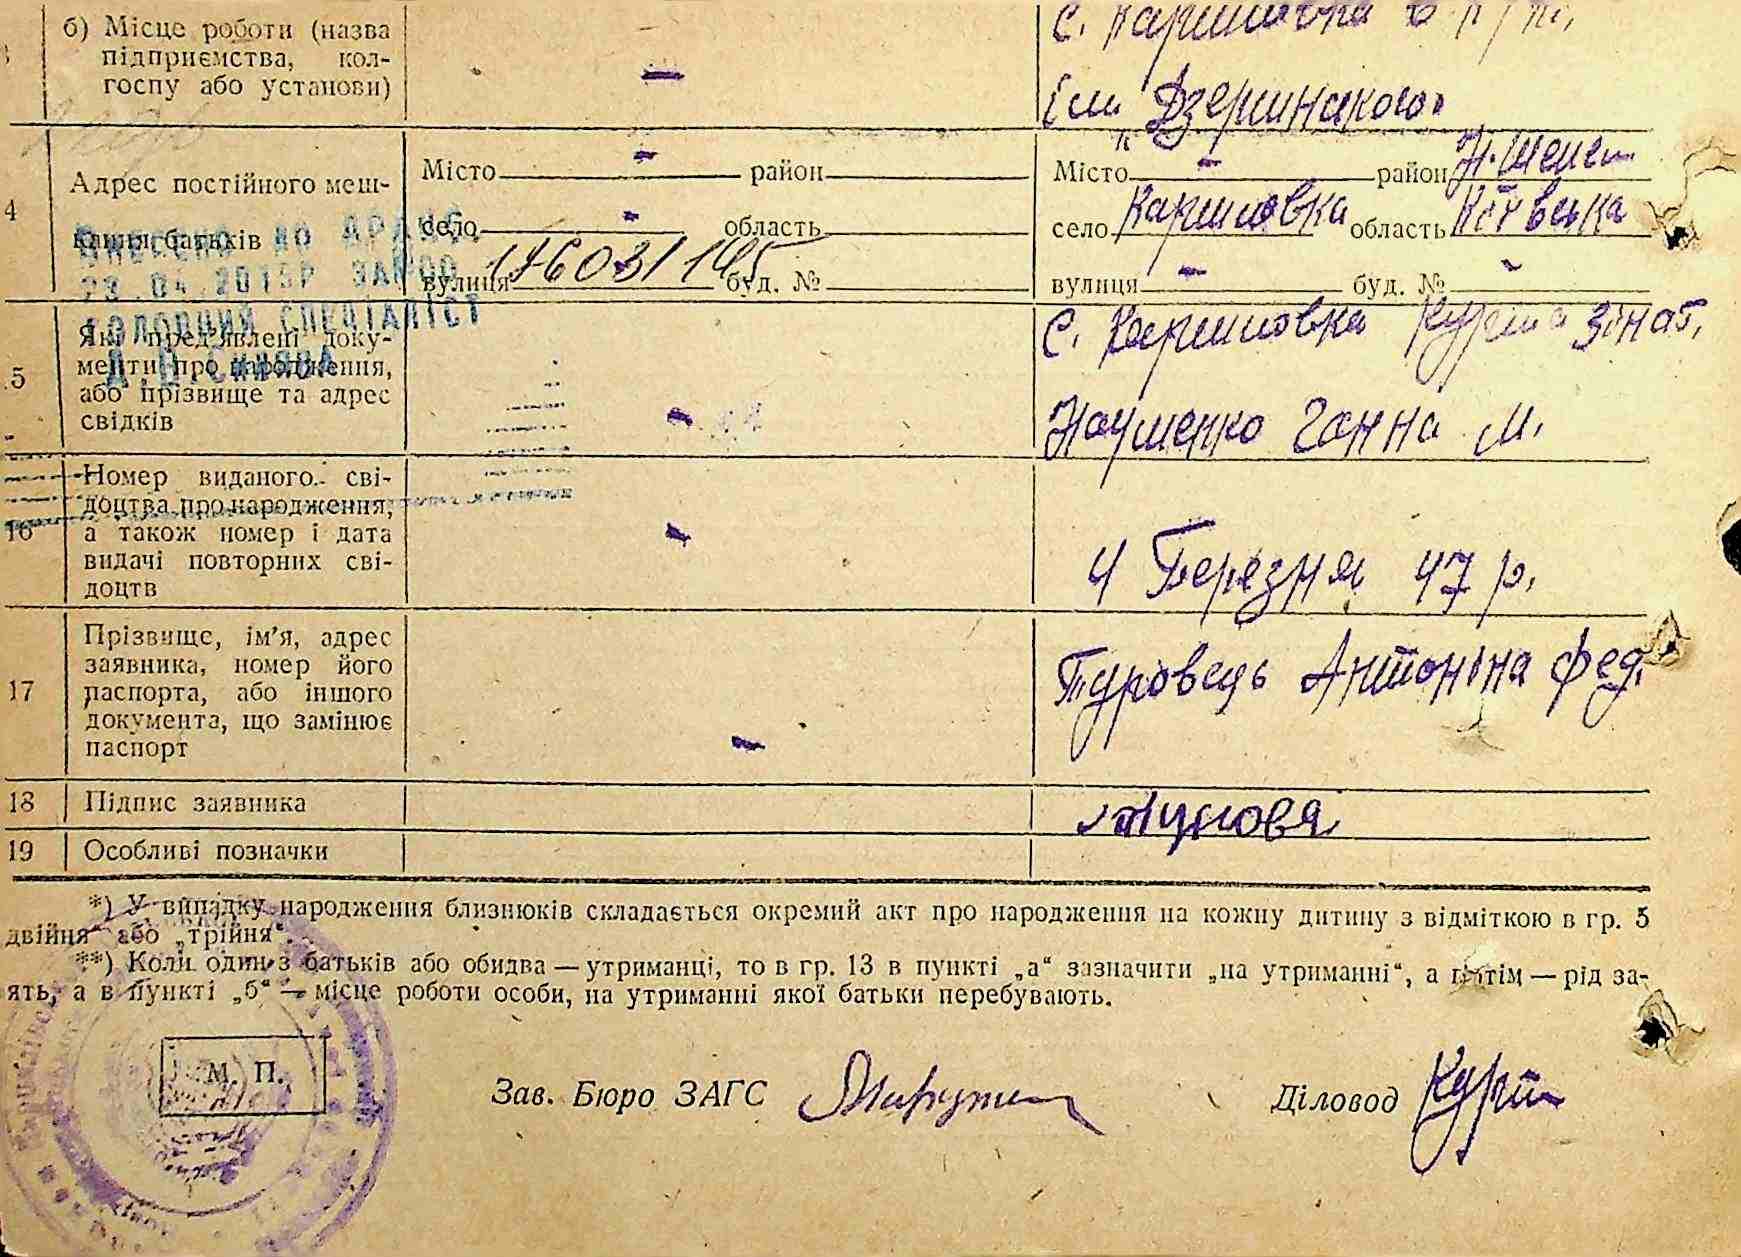 б) Місце роботи (назва
підприємства, кол-
госпу або установи)
—
ім. Дзержинського
4
Адрес постійного меш-
кання батьків
Місто - район
село - область
вулиця - буд. №
Місто - район
село Каришовка область
вулиця - буд. №
ВНЕСЕНО ДО ДРАЦС
23.04.2015Р
ГОЛОВНИЙ СПЕЦІАЛІСТ
5
Які пред'явлені доку-
менти про народження,
або прізвище та адрес
свідків
-
с. Каришовка
Науменко Ганна М.
16
Номер виданого сві-
доцтва про народження,
а також номер і дата
видачі повторних сві-
доцтв
-
4 Березня 47 р.
17
Прізвище, ім'я, адрес
заявника, номер його
паспорта, або іншого
документа, що замінює
паспорт
-
Туровець Антоніна Фед.
18 Підпис заявника
19 Особливі позначки
*) У випадку народження близнюків складається окремий акт про народження на кожну дитину з відміткою в гр. 5
двійня“ або „трійня“.
**) Коли один з батьків або обидва — утриманці, то в гр. 13 в пункті „а“ зазначити „на утриманні“, а потім — рід за-
ять, а в пункті „б“ — місце роботи особи, на утриманні якої батьки перебувають.
М. П.
Зав. Бюро ЗАГС
Діловод